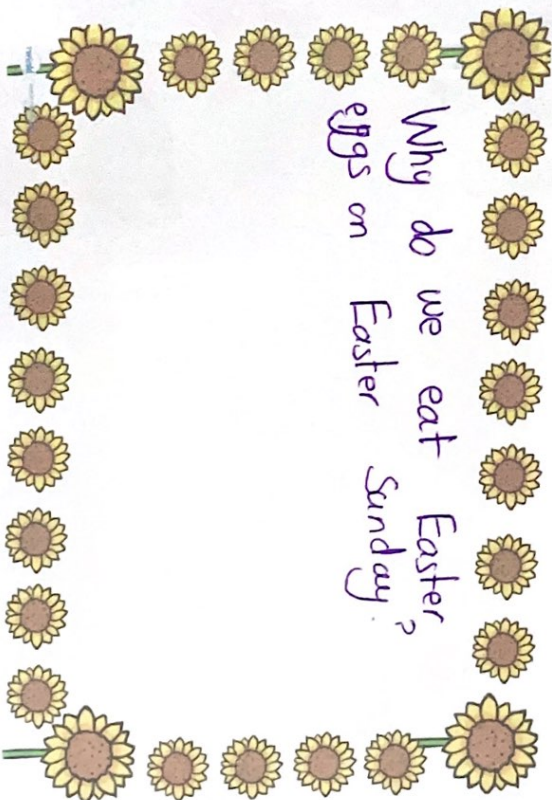 Why do we eat Easter
eggs on Easter Sunday?
twinkl